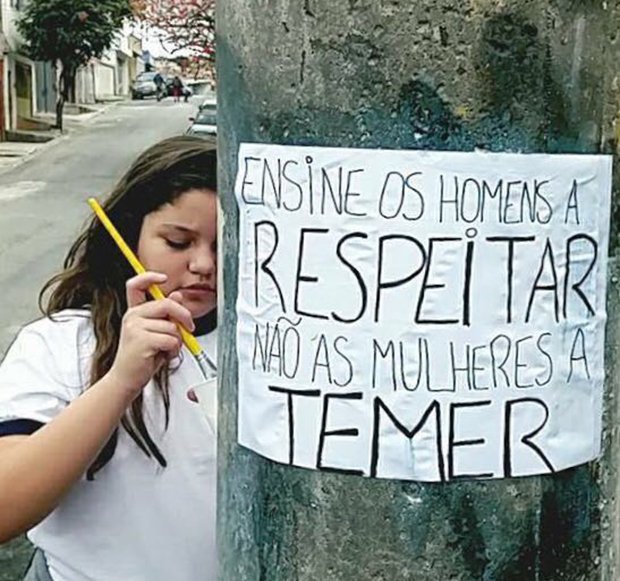 ENSINE OS HOMENS A
RESPEITAR
NÃO AS MULHERES A
TEMER